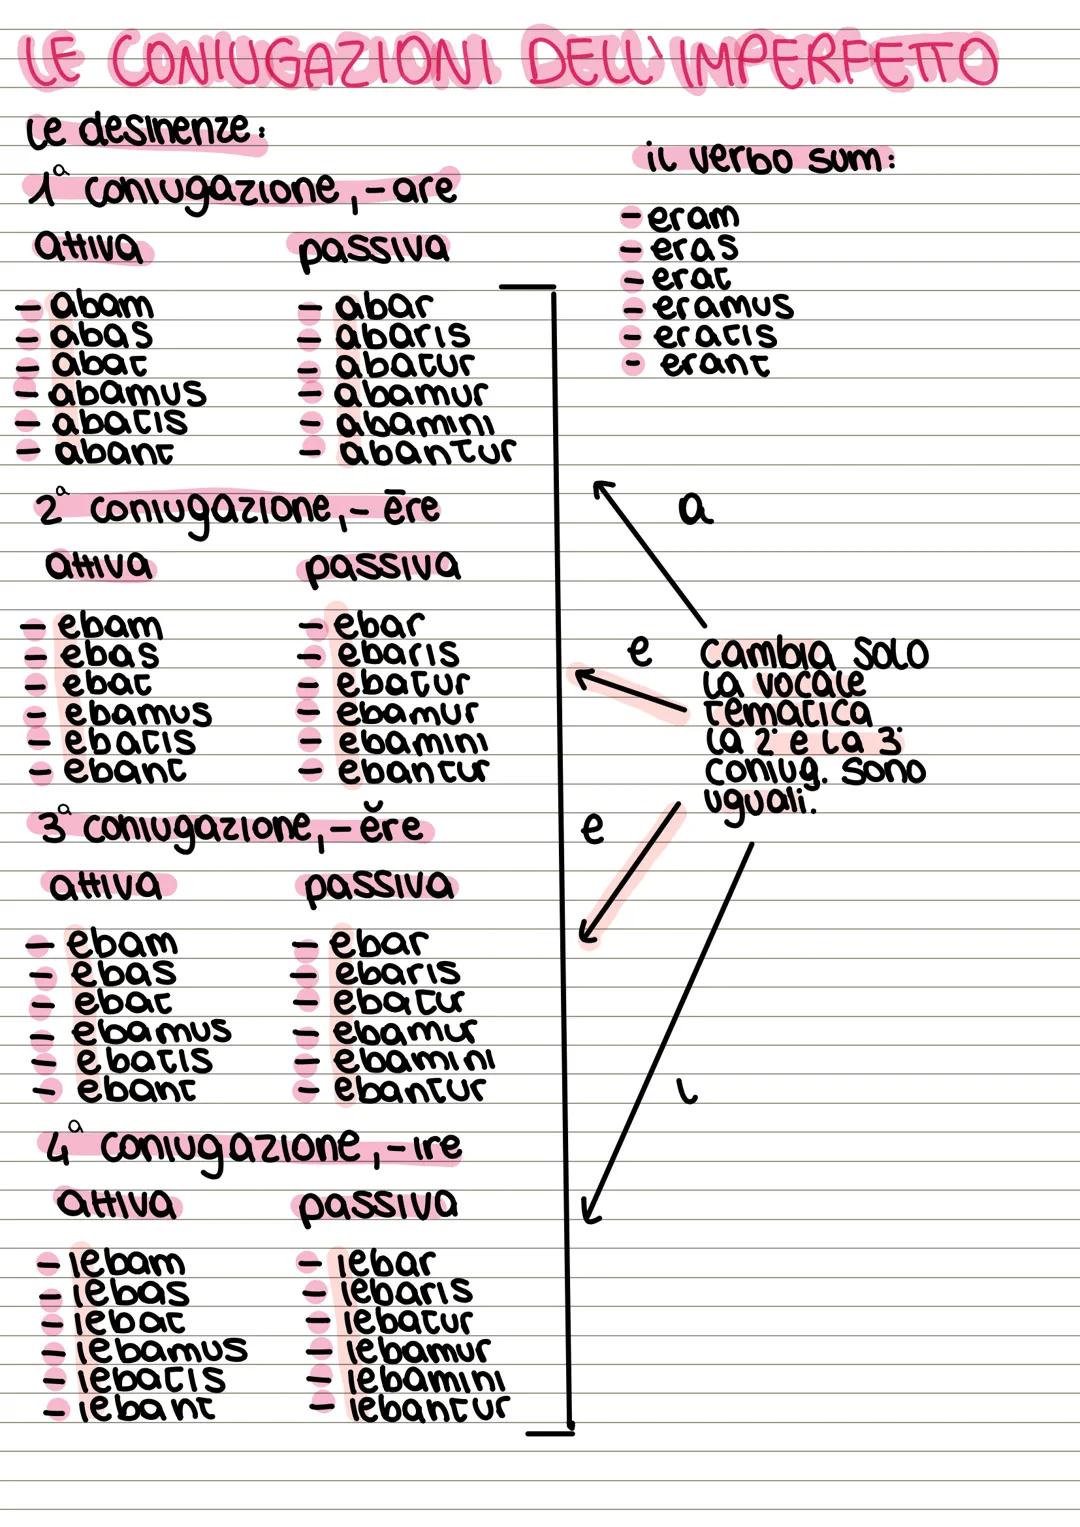 LE CONIUGAZIONI DELL'IMPERFETTO
le desinenze:
1ª coniugazione, -are
attiva passiva
- abam - abar
- abas - abaris
- abat - abatur
- abamus - abamur
- abatis - abamini
- abant - abantur
2ª coniugazione, - ēre
attiva passiva
- ebam - ebar
- ebas - ebaris
- ebat - ebatur
- ebamus - ebamur
- ebatis - ebamini
- ebant - ebantur
3ª coniugazione, - ĕre
attiva passiva
- ebam - ebar
- ebas - ebaris
- ebat - ebatur
- ebamus - ebamur
- ebatis - ebamini
- ebant - ebantur
4ª coniugazione, - ire
attiva passiva
- iebam - iebar
- iebas - iebaris
- iebat - iebatur
- iebamus - iebamur
- iebatis - iebamini
- iebant - iebantur
il verbo sum:
- eram
- eras
- erat
- eramus
- eratis
- erant
a
e
e
i
cambia solo
la vocale
tematica
la 2ª e la 3ª
coniug. sono
uguali.